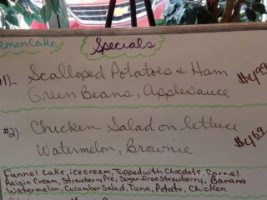 Lemon Cake Specials
#1) - Scalloped Potatoes & Ham $4.99
Green Beans, Applesauce
#2) Chicken Salad on lettuce $4.69
Watermelon, Brownie
Funnel Cake, ice cream, Topped with Chocolate, Carmel
Raisin Cream, Strawberry Pie, Sugar Free Strawberry, Banana
Watermelon, Cucumber Salad, Tuna, Potato, Chicken